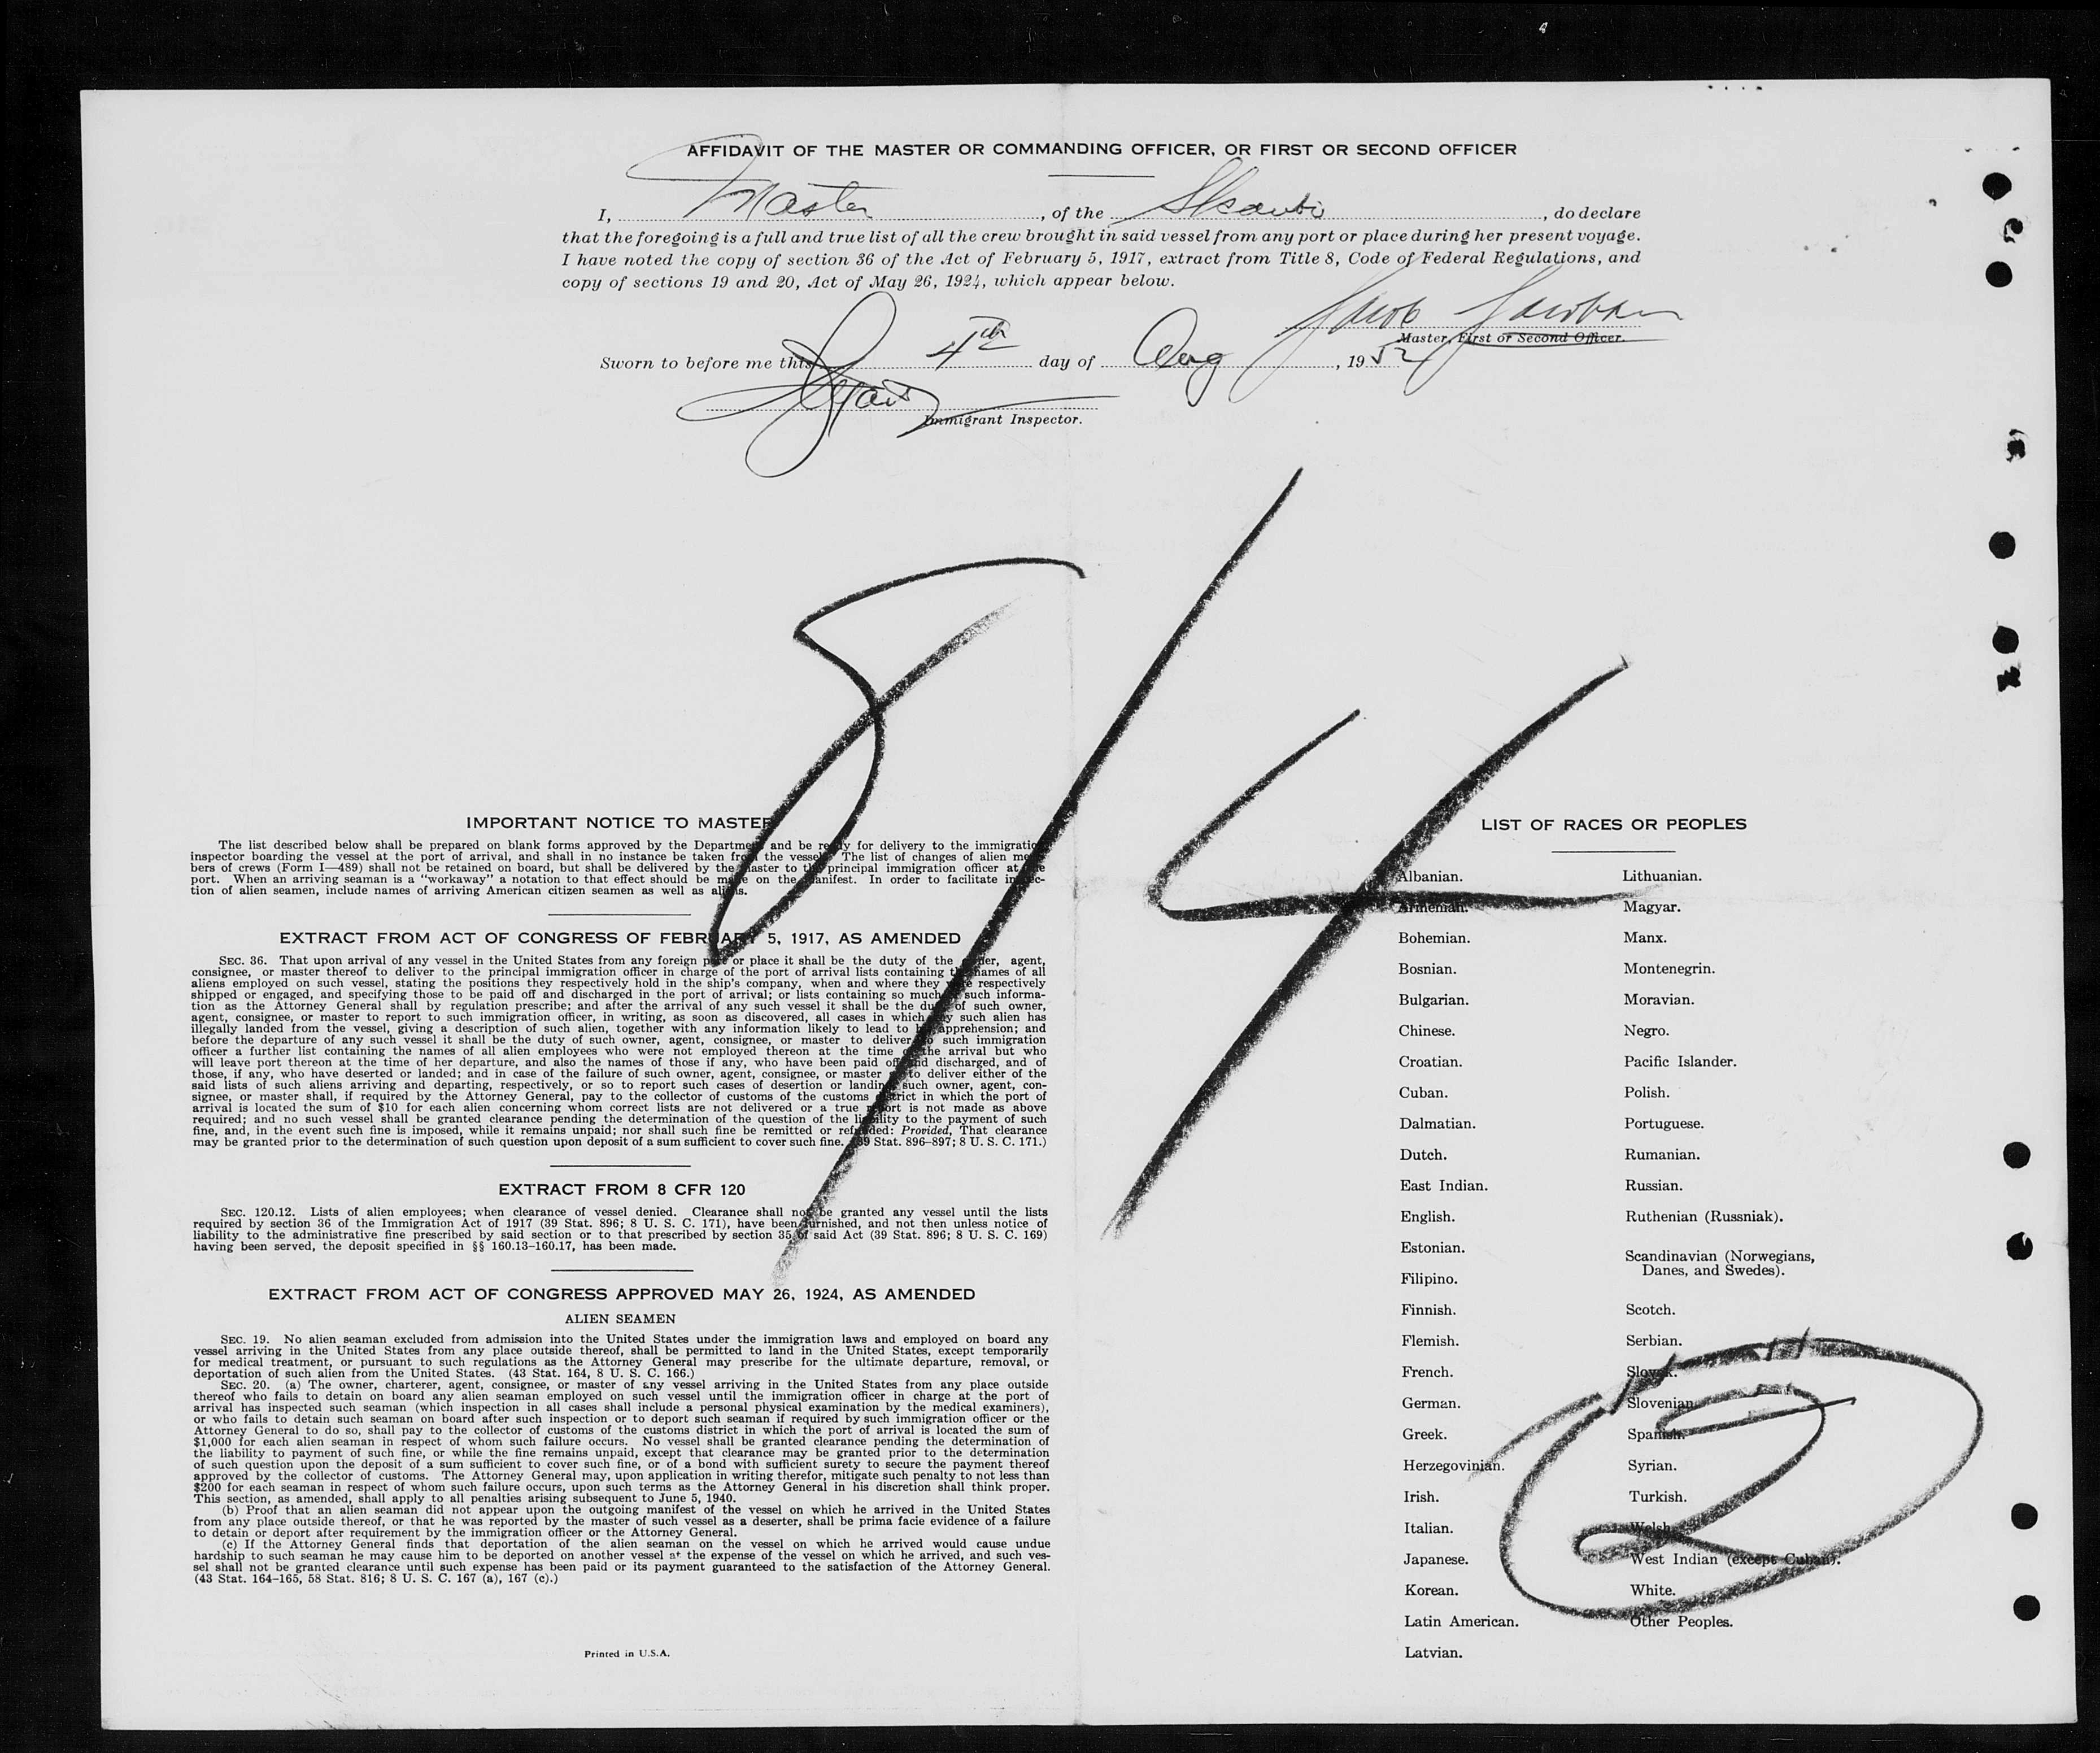 AFFIDAVIT OF THE MASTER OR COMMANDING OFFICER, OR FIRST OR SECOND OFFICER
I, Master, of the, do declare
that the foregoing is a full and true list of all the crew brought in said vessel from any port or place during her present voyage.
I have noted the copy of section 36 of the Act of February 5, 1917, extract from Title 8, Code of Federal Regulations, and
copy of sections 19 and 20, Act of May 26, 1924, which appear below.
Jacob
Master, First or Second Officer.
Sworn to before me this 4th day of Aug, 1952
Immigrant Inspector.
8/4
IMPORTANT NOTICE TO MASTER
The list described below shall be prepared on blank forms approved by the Department and be ready for delivery to the immigration
inspector boarding the vessel at the port of arrival, and shall in no instance be taken from the vessel. The list of changes of alien mem-
bers of crews (Form I—489) shall not be retained on board, but shall be delivered by the master to the principal immigration officer at the
port. When an arriving seaman is a "workaway" a notation to that effect should be made on the manifest. In order to facilitate inspec-
tion of alien seamen, include names of arriving American citizen seamen as well as aliens.
EXTRACT FROM ACT OF CONGRESS OF FEBRUARY 5, 1917, AS AMENDED
SEC. 36. That upon arrival of any vessel in the United States from any foreign port or place it shall be the duty of the owner, agent,
consignee, or master thereof to deliver to the principal immigration officer in charge of the port of arrival lists containing the names of all
aliens employed on such vessel, stating the positions they respectively hold in the ship's company, when and where they were respectively
shipped or engaged, and specifying those to be paid off and discharged in the port of arrival; or lists containing so much of such informa-
tion as the Attorney General shall by regulation prescribe; and after the arrival of any such vessel it shall be the duty of such owner,
agent, consignee, or master to report to such immigration officer, in writing, as soon as discovered, all cases in which any such alien has
illegally landed from the vessel, giving a description of such alien, together with any information likely to lead to his apprehension; and
before the departure of any such vessel it shall be the duty of such owner, agent, consignee, or master to deliver to such immigration
officer a further list containing the names of all alien employees who were not employed thereon at the time of the arrival but who
will leave port thereon at the time of her departure, and also the names of those if any, who have been paid off and discharged, and of
those, if any, who have deserted or landed; and in case of the failure of such owner, agent, consignee, or master to deliver either of the
said lists of such aliens arriving and departing, respectively, or so to report such cases of desertion or landing, such owner, agent, con-
signee, or master shall, if required by the Attorney General, pay to the collector of customs of the customs district in which the port of
arrival is located the sum of $10 for each alien concerning whom correct lists are not delivered or a true report is not made as above
required; and no such vessel shall be granted clearance pending the determination of the question of the liability to the payment of such
fine, and, in the event such fine is imposed, while it remains unpaid; nor shall such fine be remitted or refunded: Provided, That clearance
may be granted prior to the determination of such question upon deposit of a sum sufficient to cover such fine. (39 Stat. 896–897; 8 U. S. C. 171.)
EXTRACT FROM 8 CFR 120
SEC. 120.12. Lists of alien employees; when clearance of vessel denied. Clearance shall not be granted any vessel until the lists
required by section 36 of the Immigration Act of 1917 (39 Stat. 896; 8 U. S. C. 171), have been furnished, and not then unless notice of
liability to the administrative fine prescribed by said section or to that prescribed by section 35 of said Act (39 Stat. 896; 8 U. S. C. 169)
having been served, the deposit specified in §§ 160.13–160.17, has been made.
EXTRACT FROM ACT OF CONGRESS APPROVED MAY 26, 1924, AS AMENDED
ALIEN SEAMEN
SEC. 19. No alien seaman excluded from admission into the United States under the immigration laws and employed on board any
vessel arriving in the United States from any place outside thereof, shall be permitted to land in the United States, except temporarily
for medical treatment, or pursuant to such regulations as the Attorney General may prescribe for the ultimate departure, removal, or
deportation of such alien from the United States. (43 Stat. 164, 8 U. S. C. 166.)
SEC. 20. (a) The owner, charterer, agent, consignee, or master of any vessel arriving in the United States from any place outside
thereof who fails to detain on board any alien seaman employed on such vessel until the immigration officer in charge at the port of
arrival has inspected such seaman (which inspection in all cases shall include a personal physical examination by the medical examiners),
or who fails to detain such seaman on board after such inspection or to deport such seaman if required by such immigration officer or the
Attorney General to do so, shall pay to the collector of customs of the customs district in which the port of arrival is located the sum of
$1,000 for each alien seaman in respect of whom such failure occurs. No vessel shall be granted clearance pending the determination of
the liability to payment of such fine, or while the fine remains unpaid, except that clearance may be granted prior to the determination
of such question upon the deposit of a sum sufficient to cover such fine, or of a bond with sufficient surety to secure the payment thereof
approved by the collector of customs. The Attorney General may, upon application in writing therefor, mitigate such penalty to not less than
$200 for each seaman in respect of whom such failure occurs, upon such terms as the Attorney General in his discretion shall think proper.
This section, as amended, shall apply to all penalties arising subsequent to June 5, 1940.
(b) Proof that an alien seaman did not appear upon the outgoing manifest of the vessel on which he arrived in the United States
from any place outside thereof, or that he was reported by the master of such vessel as a deserter, shall be prima facie evidence of a failure
to detain or deport after requirement by the immigration officer or the Attorney General.
(c) If the Attorney General finds that deportation of the alien seaman on the vessel on which he arrived would cause undue
hardship to such seaman he may cause him to be deported on another vessel at the expense of the vessel on which he arrived, and such ves-
sel shall not be granted clearance until such expense has been paid or its payment guaranteed to the satisfaction of the Attorney General.
(43 Stat. 164–165, 58 Stat. 816; 8 U. S. C. 167 (a), 167 (c).)
Printed in U.S.A.
LIST OF RACES OR PEOPLES
Albanian.
Armenian.
Bohemian.
Bosnian.
Bulgarian.
Chinese.
Croatian.
Cuban.
Dalmatian.
Dutch.
East Indian.
English.
Estonian.
Filipino.
Finnish.
Flemish.
French.
German.
Greek.
Herzegovinian.
Irish.
Italian.
Japanese.
Korean.
Latin American.
Latvian.
Lithuanian.
Magyar.
Manx.
Montenegrin.
Moravian.
Negro.
Pacific Islander.
Polish.
Portuguese.
Rumanian.
Russian.
Ruthenian (Russniak).
Scandinavian (Norwegians,
Danes, and Swedes).
Scotch.
Serbian.
Slovak.
Slovenian.
Spanish.
Syrian.
Turkish.
Welsh.
West Indian (except Cuban).
White.
Other Peoples.
2